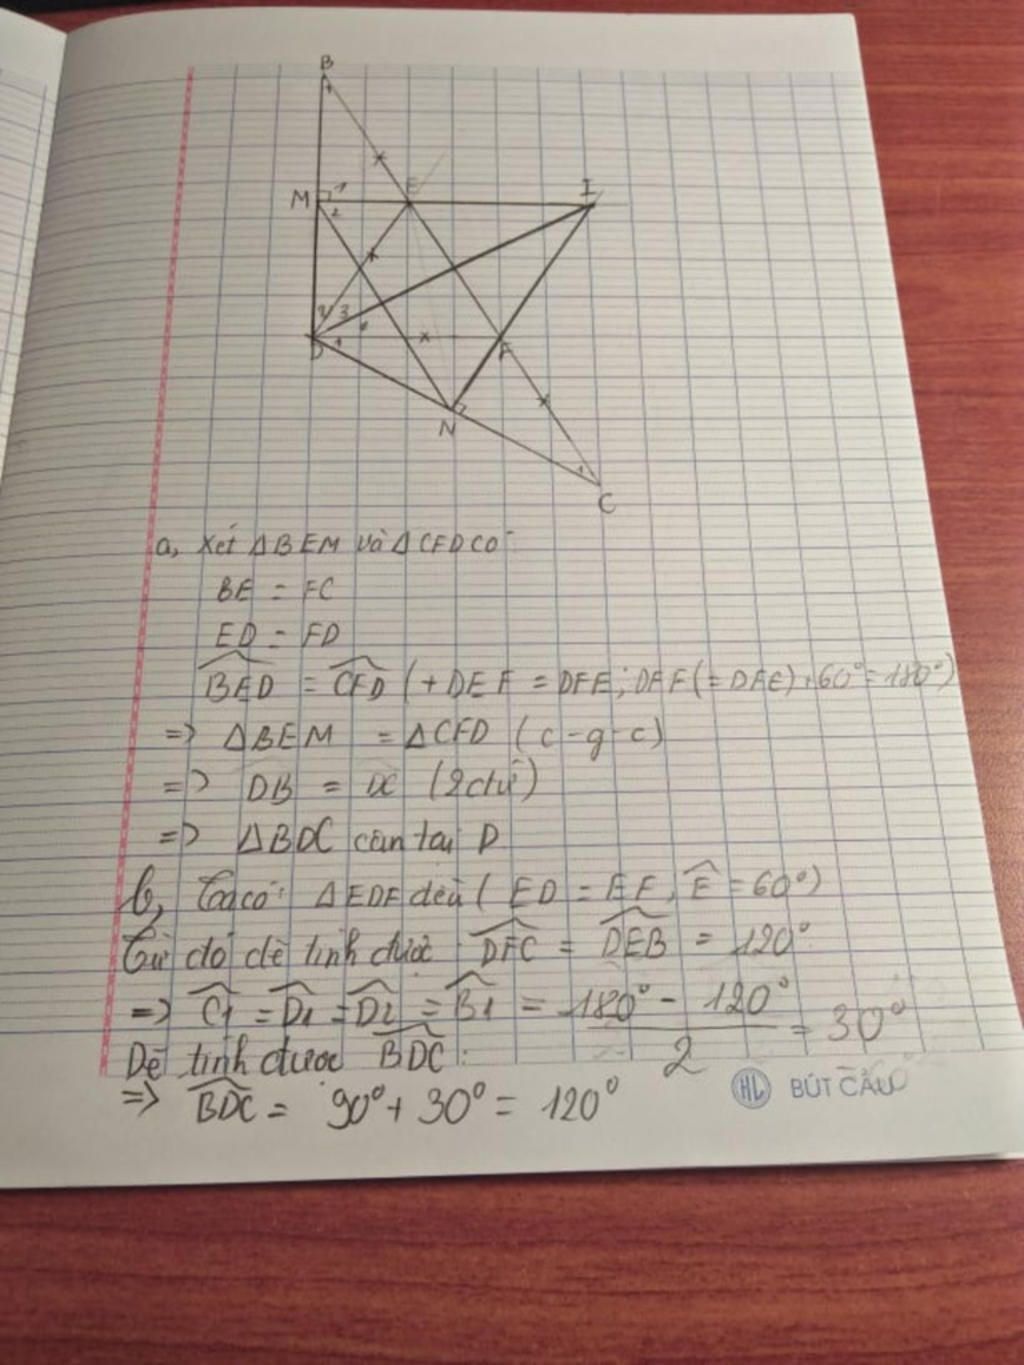 B
1
M
1
2
E
I
2
3
1
D
F
N
1
C
a, Xét ΔBEM và ΔCFD có
BE = FC
ED = FD
BED = CFD (+ DEF = DFE; DEF (= DFE) + 60° = 180°)
=> ΔBEM = ΔCFD (c-g-c)
=> DB = DC (2ctứ)
=> ΔBDC cân tại D
b, Ta có: ΔEDF đều (ED = EF, E = 60°)
Từ đó dễ tính được DFC = DEB = 120°
=> C1 = D1 = D2 = B1 = 180° - 120° / 2 = 30°
Dễ tính được BDC:
=> BDC = 90° + 30° = 120°
HL BÚT CẦU